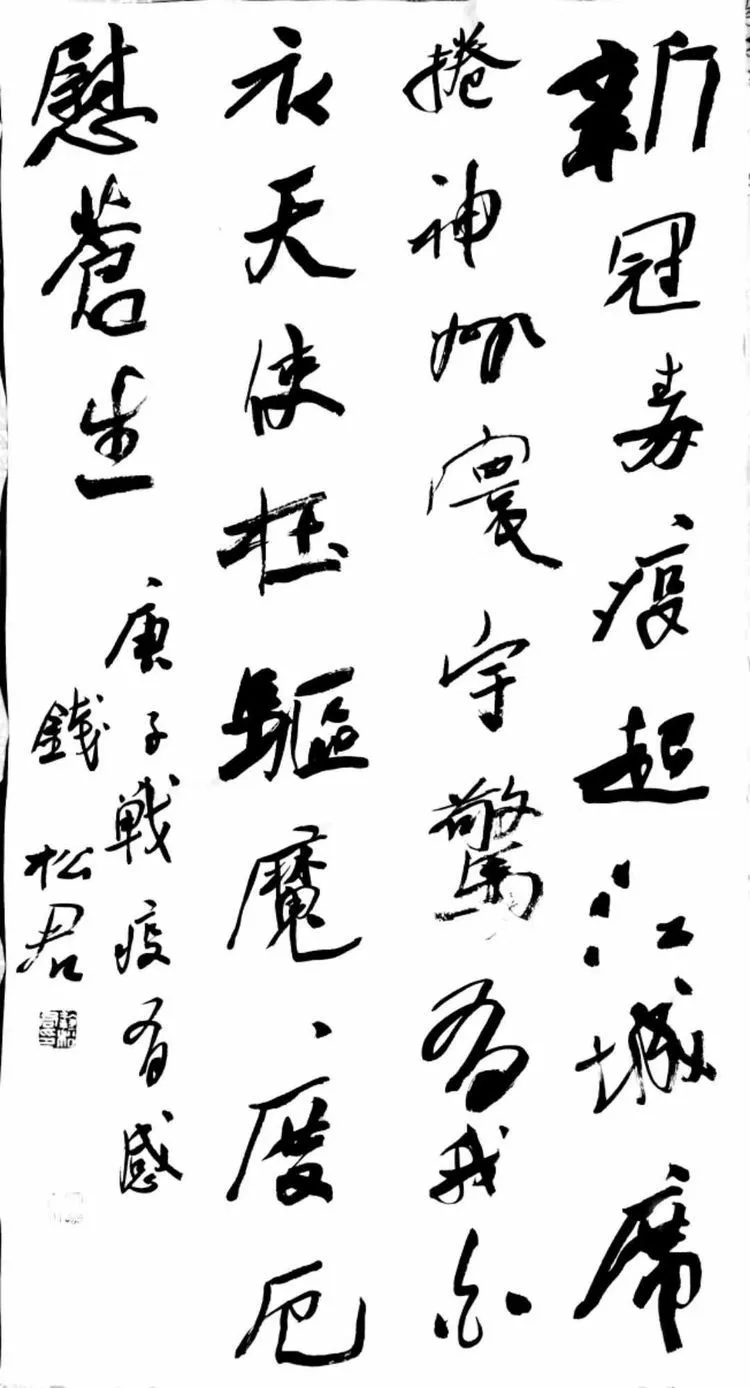 新冠毒疫起江城席
捲神州寰宇驚有我白
衣天使在驅魔度厄
慰蒼生
庚子戰疫有感
錢松君